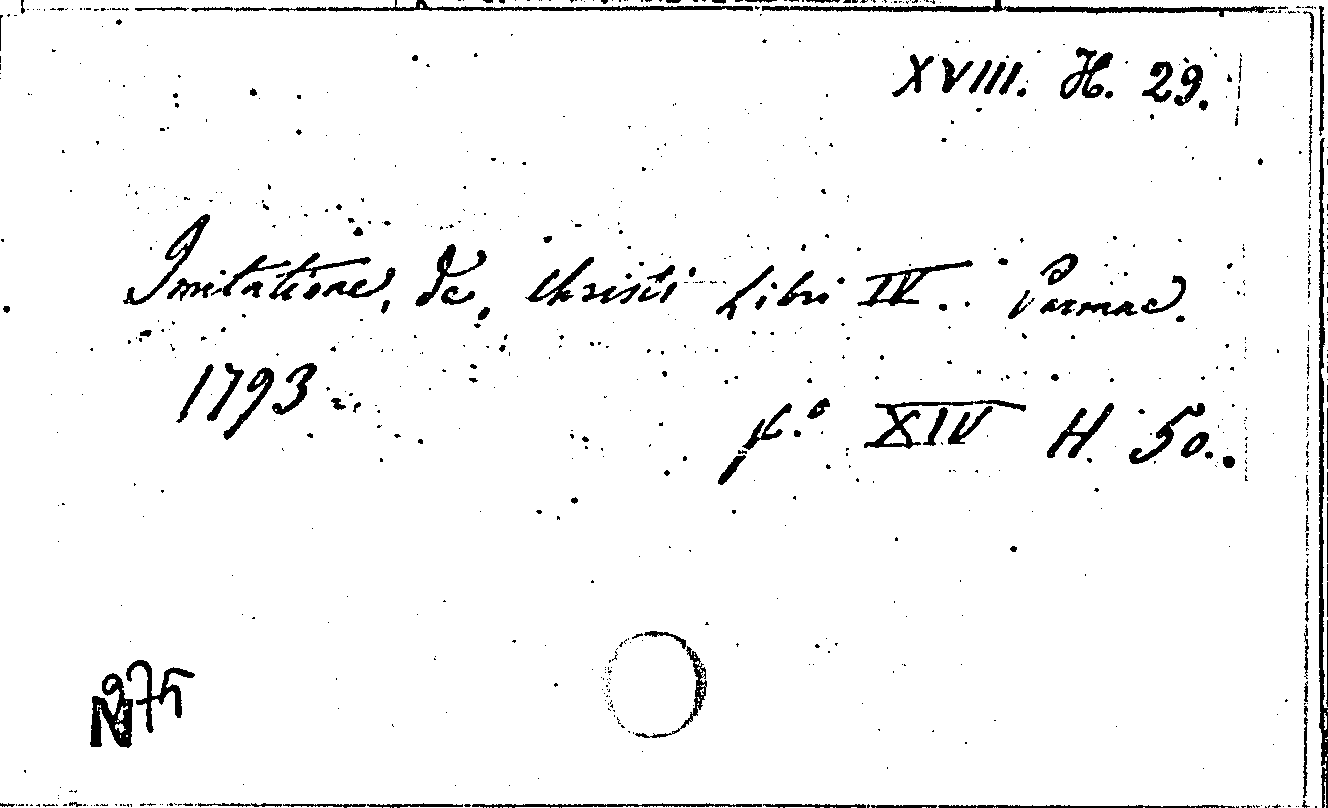 XVIII. H. 29.
Imitatione, De, Christi Libri IV. Parmae.
1793
f.º XIV H 50.